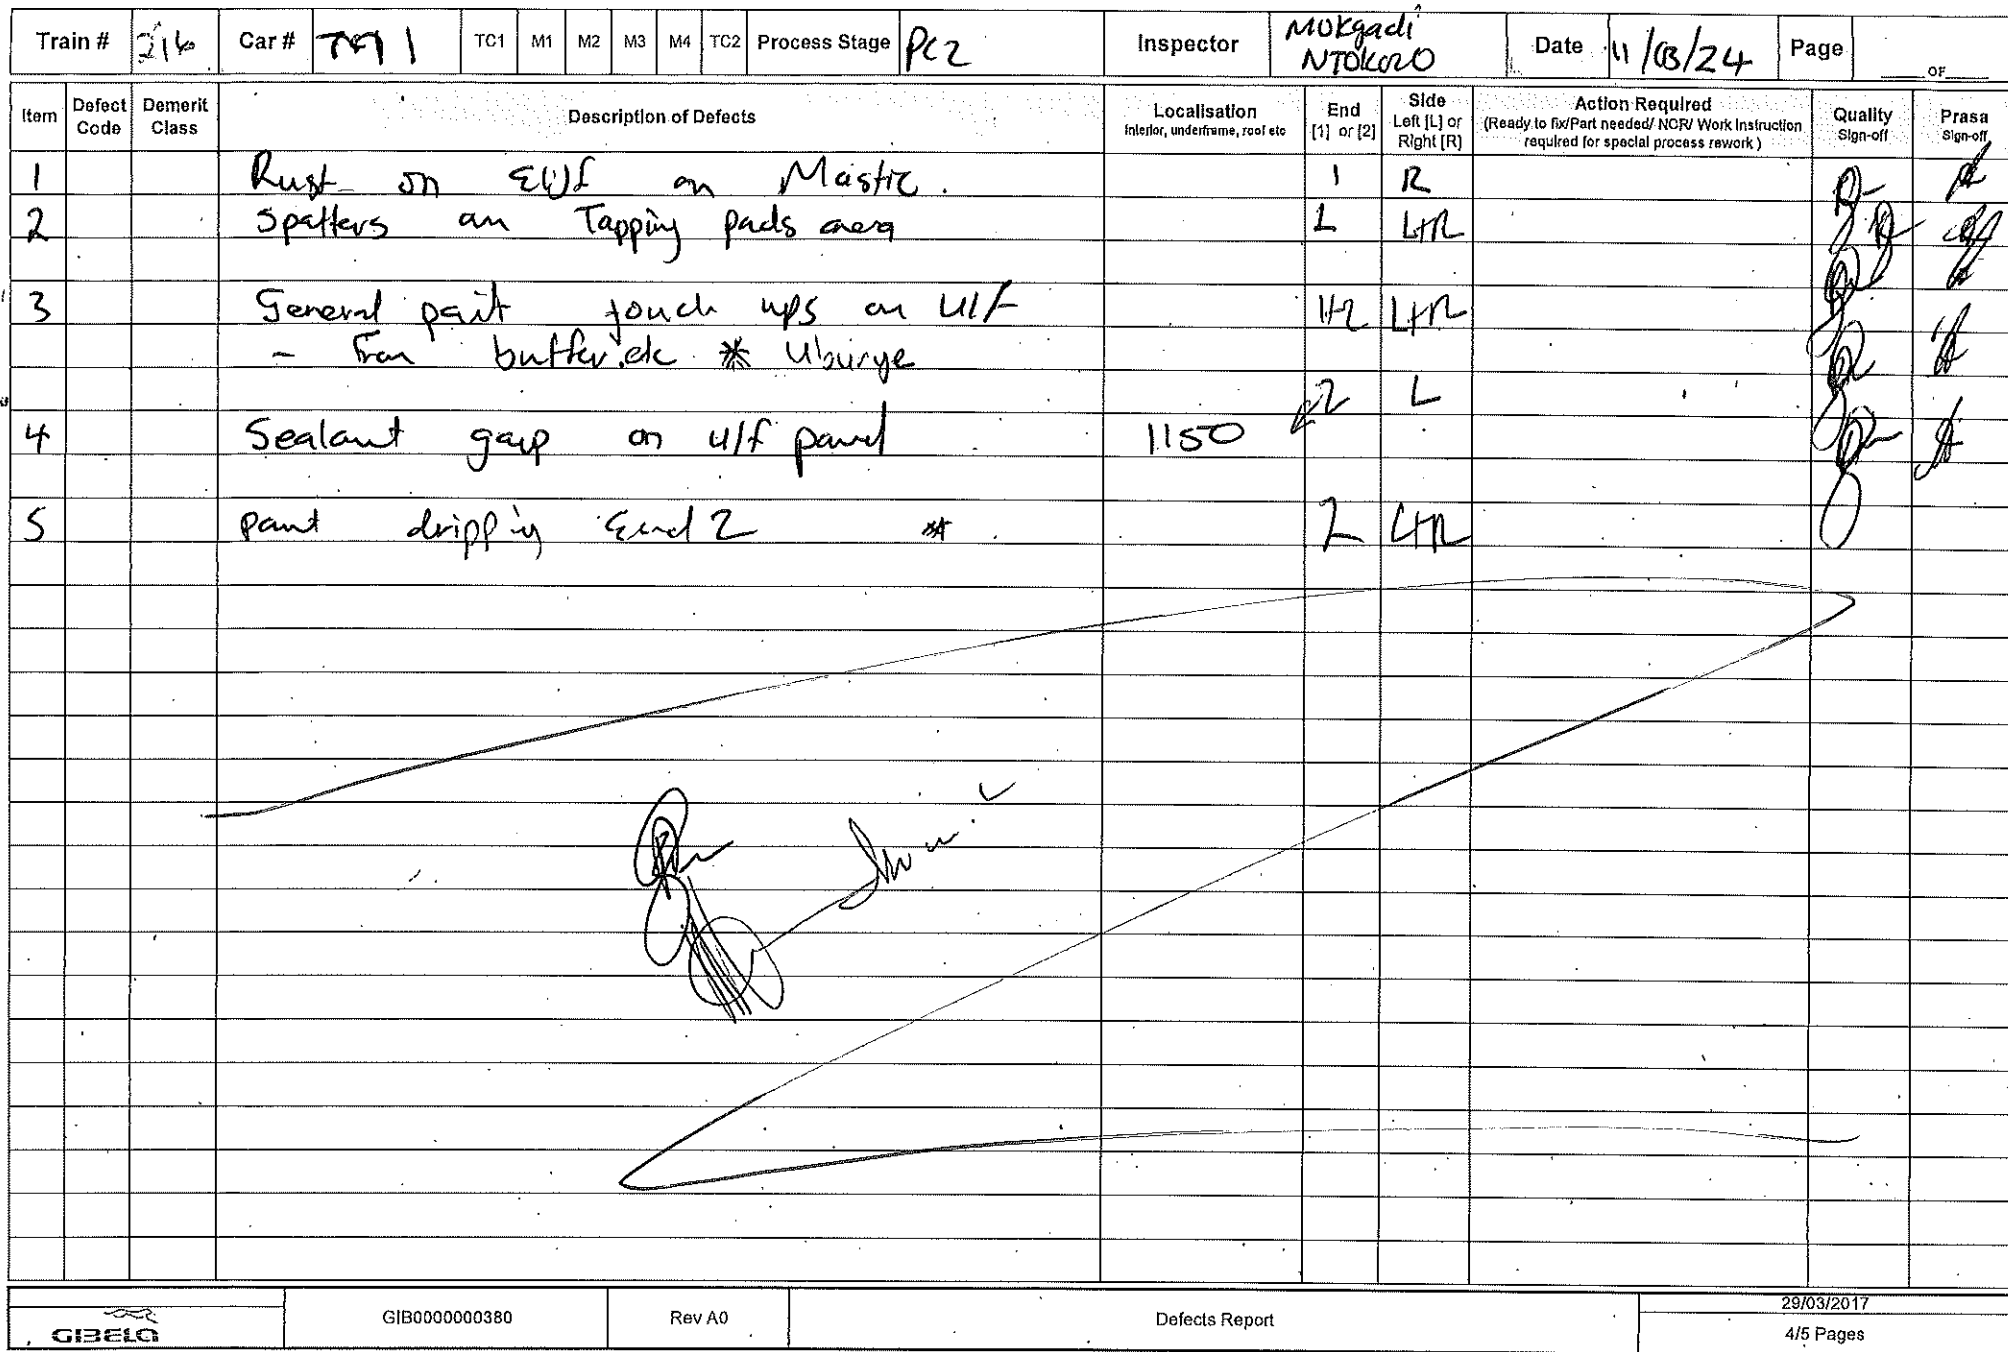 Train # 216 Car # TC1 TC1 M1 M2 M3 M4 TC2 Process Stage PC2 Inspector Mokgadi NTOKOZO Date 11/03/24 Page ___OF___
Item Defect Code Demerit Class Description of Defects Localisation Interior, underframe, roof etc End [1] or [2] Side Left [L] or Right [R] Action Required (Ready to fix/Part needed/ NCR/ Work Instruction required for special process rework ) Quality Sign-off Prasa Sign-off
1 Rust on EWF on Mastic. 1 R
2 Spatters on Tapping pads area 1 L+R
3 General paint touch ups on U/F 1+2 L+R
- From buffer.etc *
2 L
4 Sealant gap on u/f panel 1150
5 paint dripping End 2 * 2 L+R
GIBELA GIB0000000380 Rev A0 Defects Report 29/03/2017
4/5 Pages